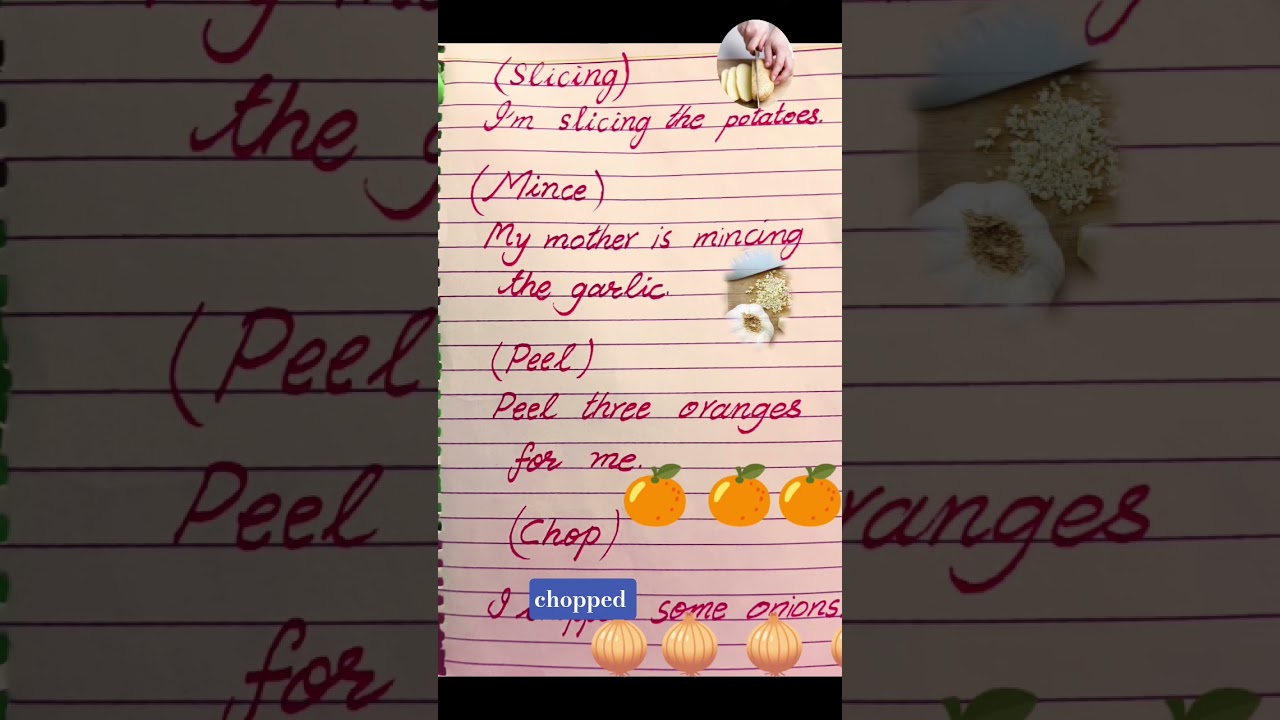 (Slicing)
I'm slicing the potatoes.
(Mince)
My mother is mincing
the garlic.
(Peel)
Peel three oranges
for me.
(Chop)
I chopped some onions.